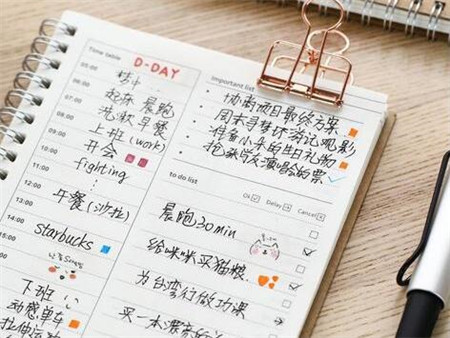 Time table
D-DAY
05:00
06:00
起床 晨跑
07:00
洗漱 早餐
08:00
上班 (work)
09:00
开会
10:00
fighting
11:00
12:00
午餐 (沙拉)
13:00
14:00
starbucks
15:00
下班
动感单车
拉伸运动
Important list
协商项目最终方案
周末寻梦环游记观影
准备小朱的生日礼物
抢 演唱会的票
to do list
Ok Delay Cancel
晨跑30min
给咪咪买猫粮
为台湾行做功课
买一本漂亮的